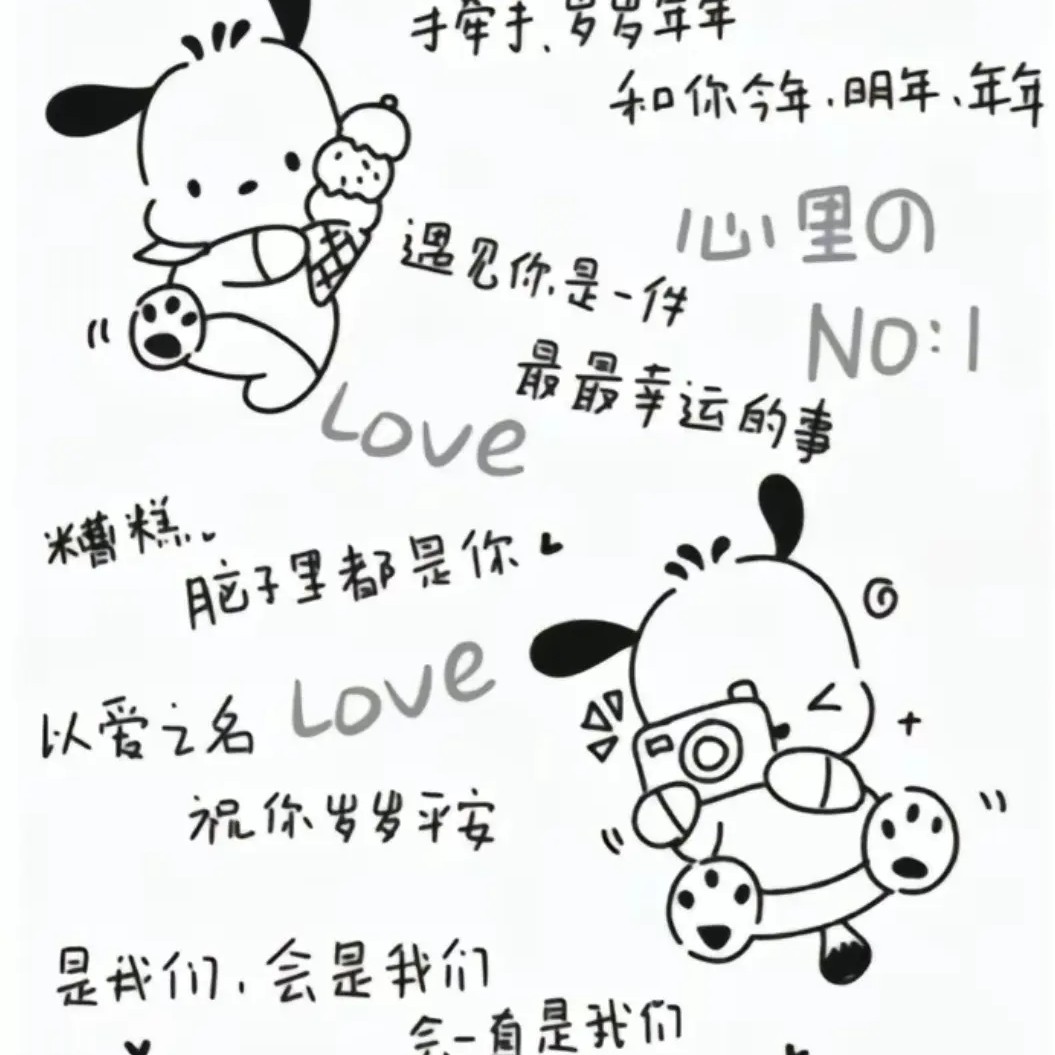 手牵手、岁岁年年
和你今年、明年、年年
心里の
NO:1
遇见你是一件
最最幸运的事
Love
糟糕、
脑子里都是你
Love
以爱之名
祝你岁岁平安
是我们、会是我们
会一直是我们